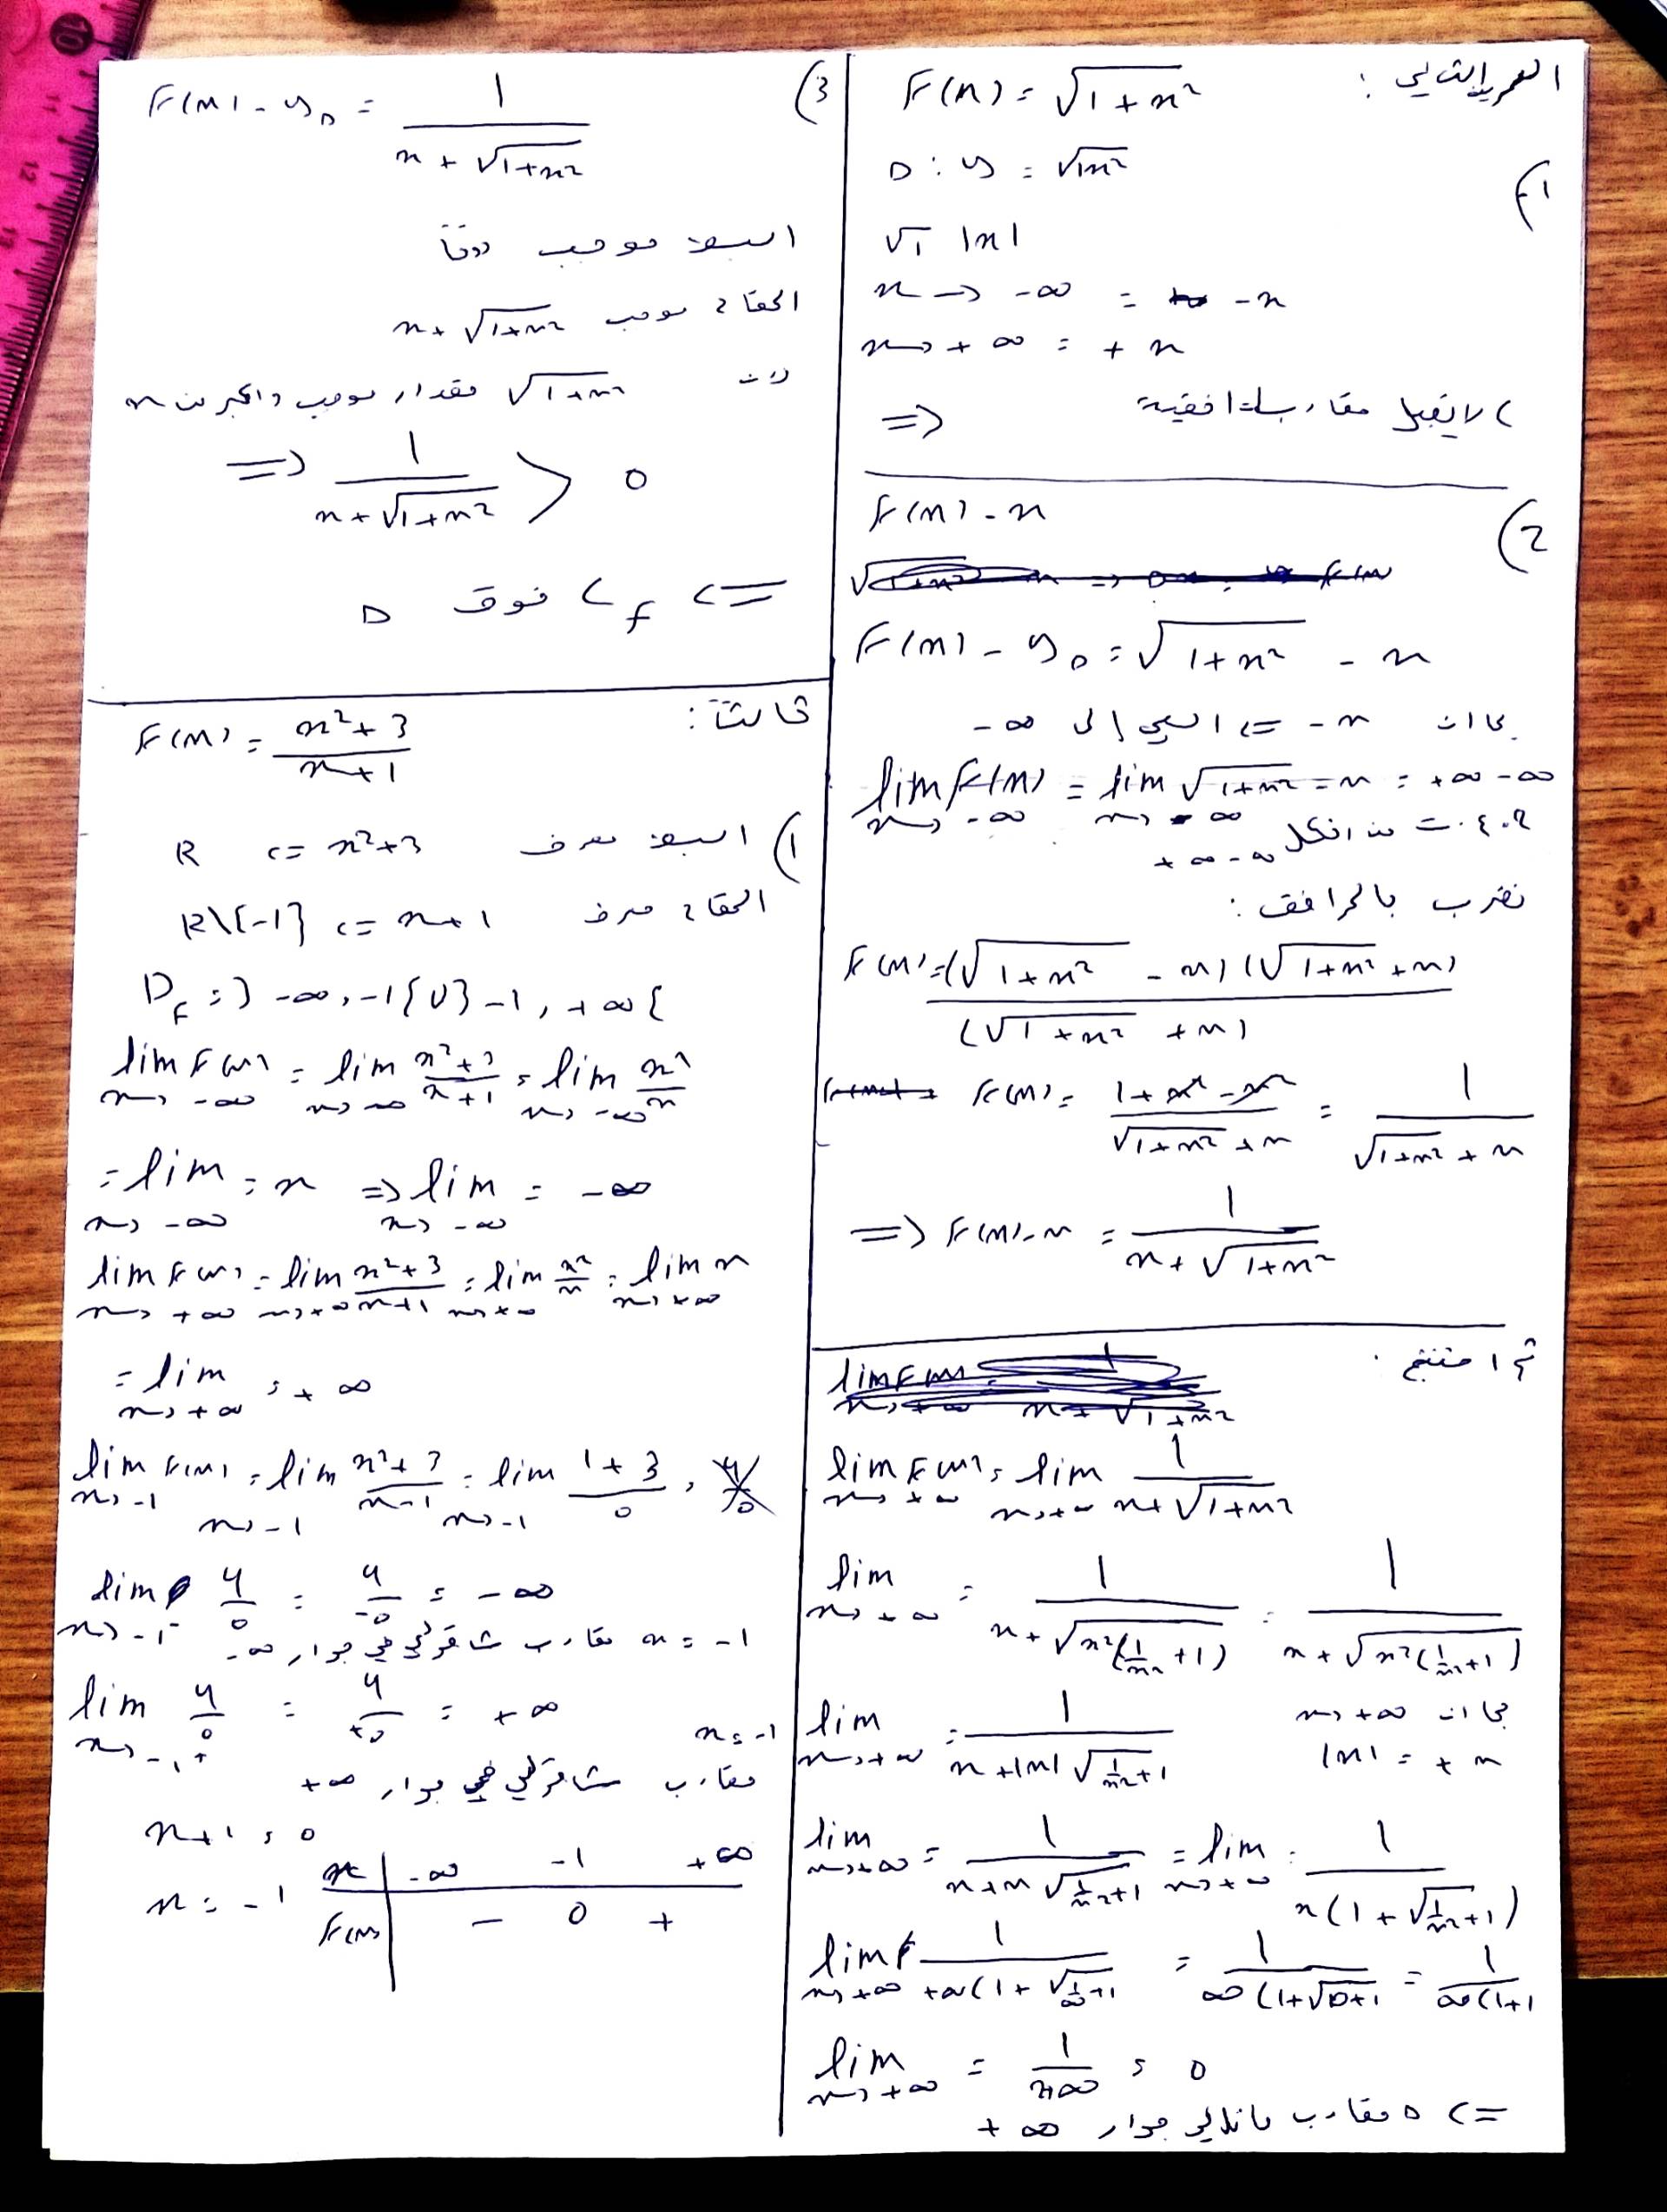 التمرين الثاني :
F(x) = √1+x²
(1
D : y = √1x²
√1 |x|
x → -∞ = -x
x → +∞ = + x
⇒ C لا يقبل مقاربات افقية
(2
F(x) - x
F(x) - y_D = √1+x² - x
بما ان -x ⇐ السعي إلى -∞
lim F(x) = lim √1+x² - x = +∞ -∞
x→ -∞ x→ -∞
ح.ع.ت من الشكل
+∞-∞
نضرب بالمرافق :
F(x) = (√1+x² - x) (√1+x² + x)
(√1+x² + x)
F(x) = 1+x² - x² / √1+x² + x = 1 / √1+x² + x
⇒ F(x) - x = 1 / x + √1+x²
ثم استنتج :
lim F(x) = lim 1 / x + √1+x²
x→ +∞ x→ +∞
lim = 1 / x + √x²(1/x² + 1) = 1 / x + √x²(1/x² + 1)
x→ +∞
بما ان x→ +∞
|x| = + x
lim = 1 / x + |x| √1/x² + 1
x→ +∞
lim = 1 / x + x √1/x² + 1 = lim = 1 / x(1 + √1/x² + 1)
x→ +∞ x→ +∞
lim 1 / +∞(1 + √1/∞ + 1 = 1 / ∞(1+√0+1 = 1 / ∞(1+1
x→ +∞
lim = 1 / +∞ = 0
x→ +∞
⇐ D مقارب مائل في جوار +∞
(3
F(x) - y_D = 1 / x + √1+x²
البسط موجب دوماً
المقام موجب x + √1+x²
لان √1+x² مقدار موجب واكبر من x
⇒ 1 / x + √1+x² > 0
⇐ C_f فوق D
ثالثاً :
F(x) = x² + 3 / x + 1
(1 البسط معرف x² + 3 ⇐ R
المقام معرف x + 1 ⇐ R\{-1}
D_F = ] -∞, -1[ U ] -1, +∞ [
lim F(x) = lim x² + 3 / x + 1 = lim x² / x
x→ -∞ x→ -∞ x→ -∞
= lim = x ⇒ lim = -∞
x→ -∞ x→ -∞
lim F(x) = lim x² + 3 / x + 1 = lim x² / x = lim x
x→ +∞ x→ +∞ x→ +∞ x→ +∞
= lim = + ∞
x→ +∞
lim F(x) = lim x² + 3 / x - 1 = lim 1 + 3 / 0
x→ -1 x→ -1 x→ -1
lim 4 / 0 = 4 / -0 = -∞
x→ -1⁻
x = -1 مقارب شاقولي في جوار -∞
lim 4 / 0 = 4 / +0 = +∞
x→ -1⁺
x = -1
مقارب شاقولي في جوار +∞
x + 1 = 0
x = -1
x | -∞ -1 +∞
F(x) | - 0 +